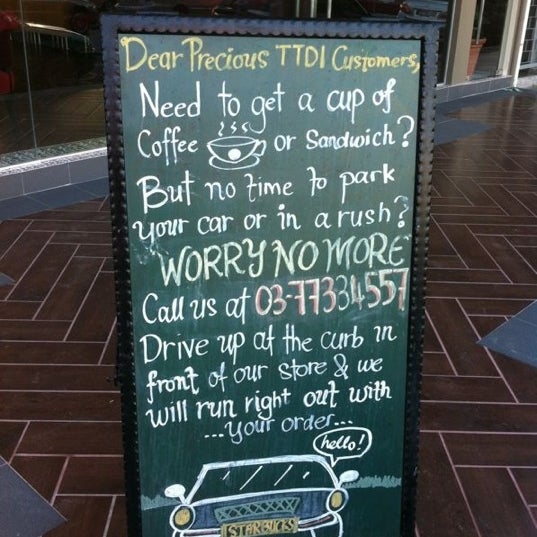 Dear Precious TTDI Customers,
Need to get a cup of
Coffee or Sandwich?
But no time to park
your car or in a rush?
WORRY NO MORE
Call us at 03-77334557
Drive up at the curb in
front of our store & we
will run right out with
...your order...
hello!
STARBUCKS